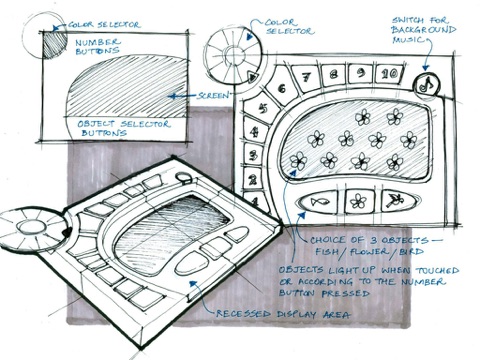 COLOR SELECTOR
NUMBER
BUTTONS
SCREEN
OBJECT SELECTOR
BUTTONS
COLOR
SELECTOR
SWITCH FOR
BACKGROUND
MUSIC
10
9
8
7
6
5
4
3
2
1
CHOICE OF 3 OBJECTS —
FISH/FLOWER/BIRD
OBJECTS LIGHT UP WHEN TOUCHED
OR ACCORDING TO THE NUMBER
BUTTON PRESSED
RECESSED DISPLAY AREA